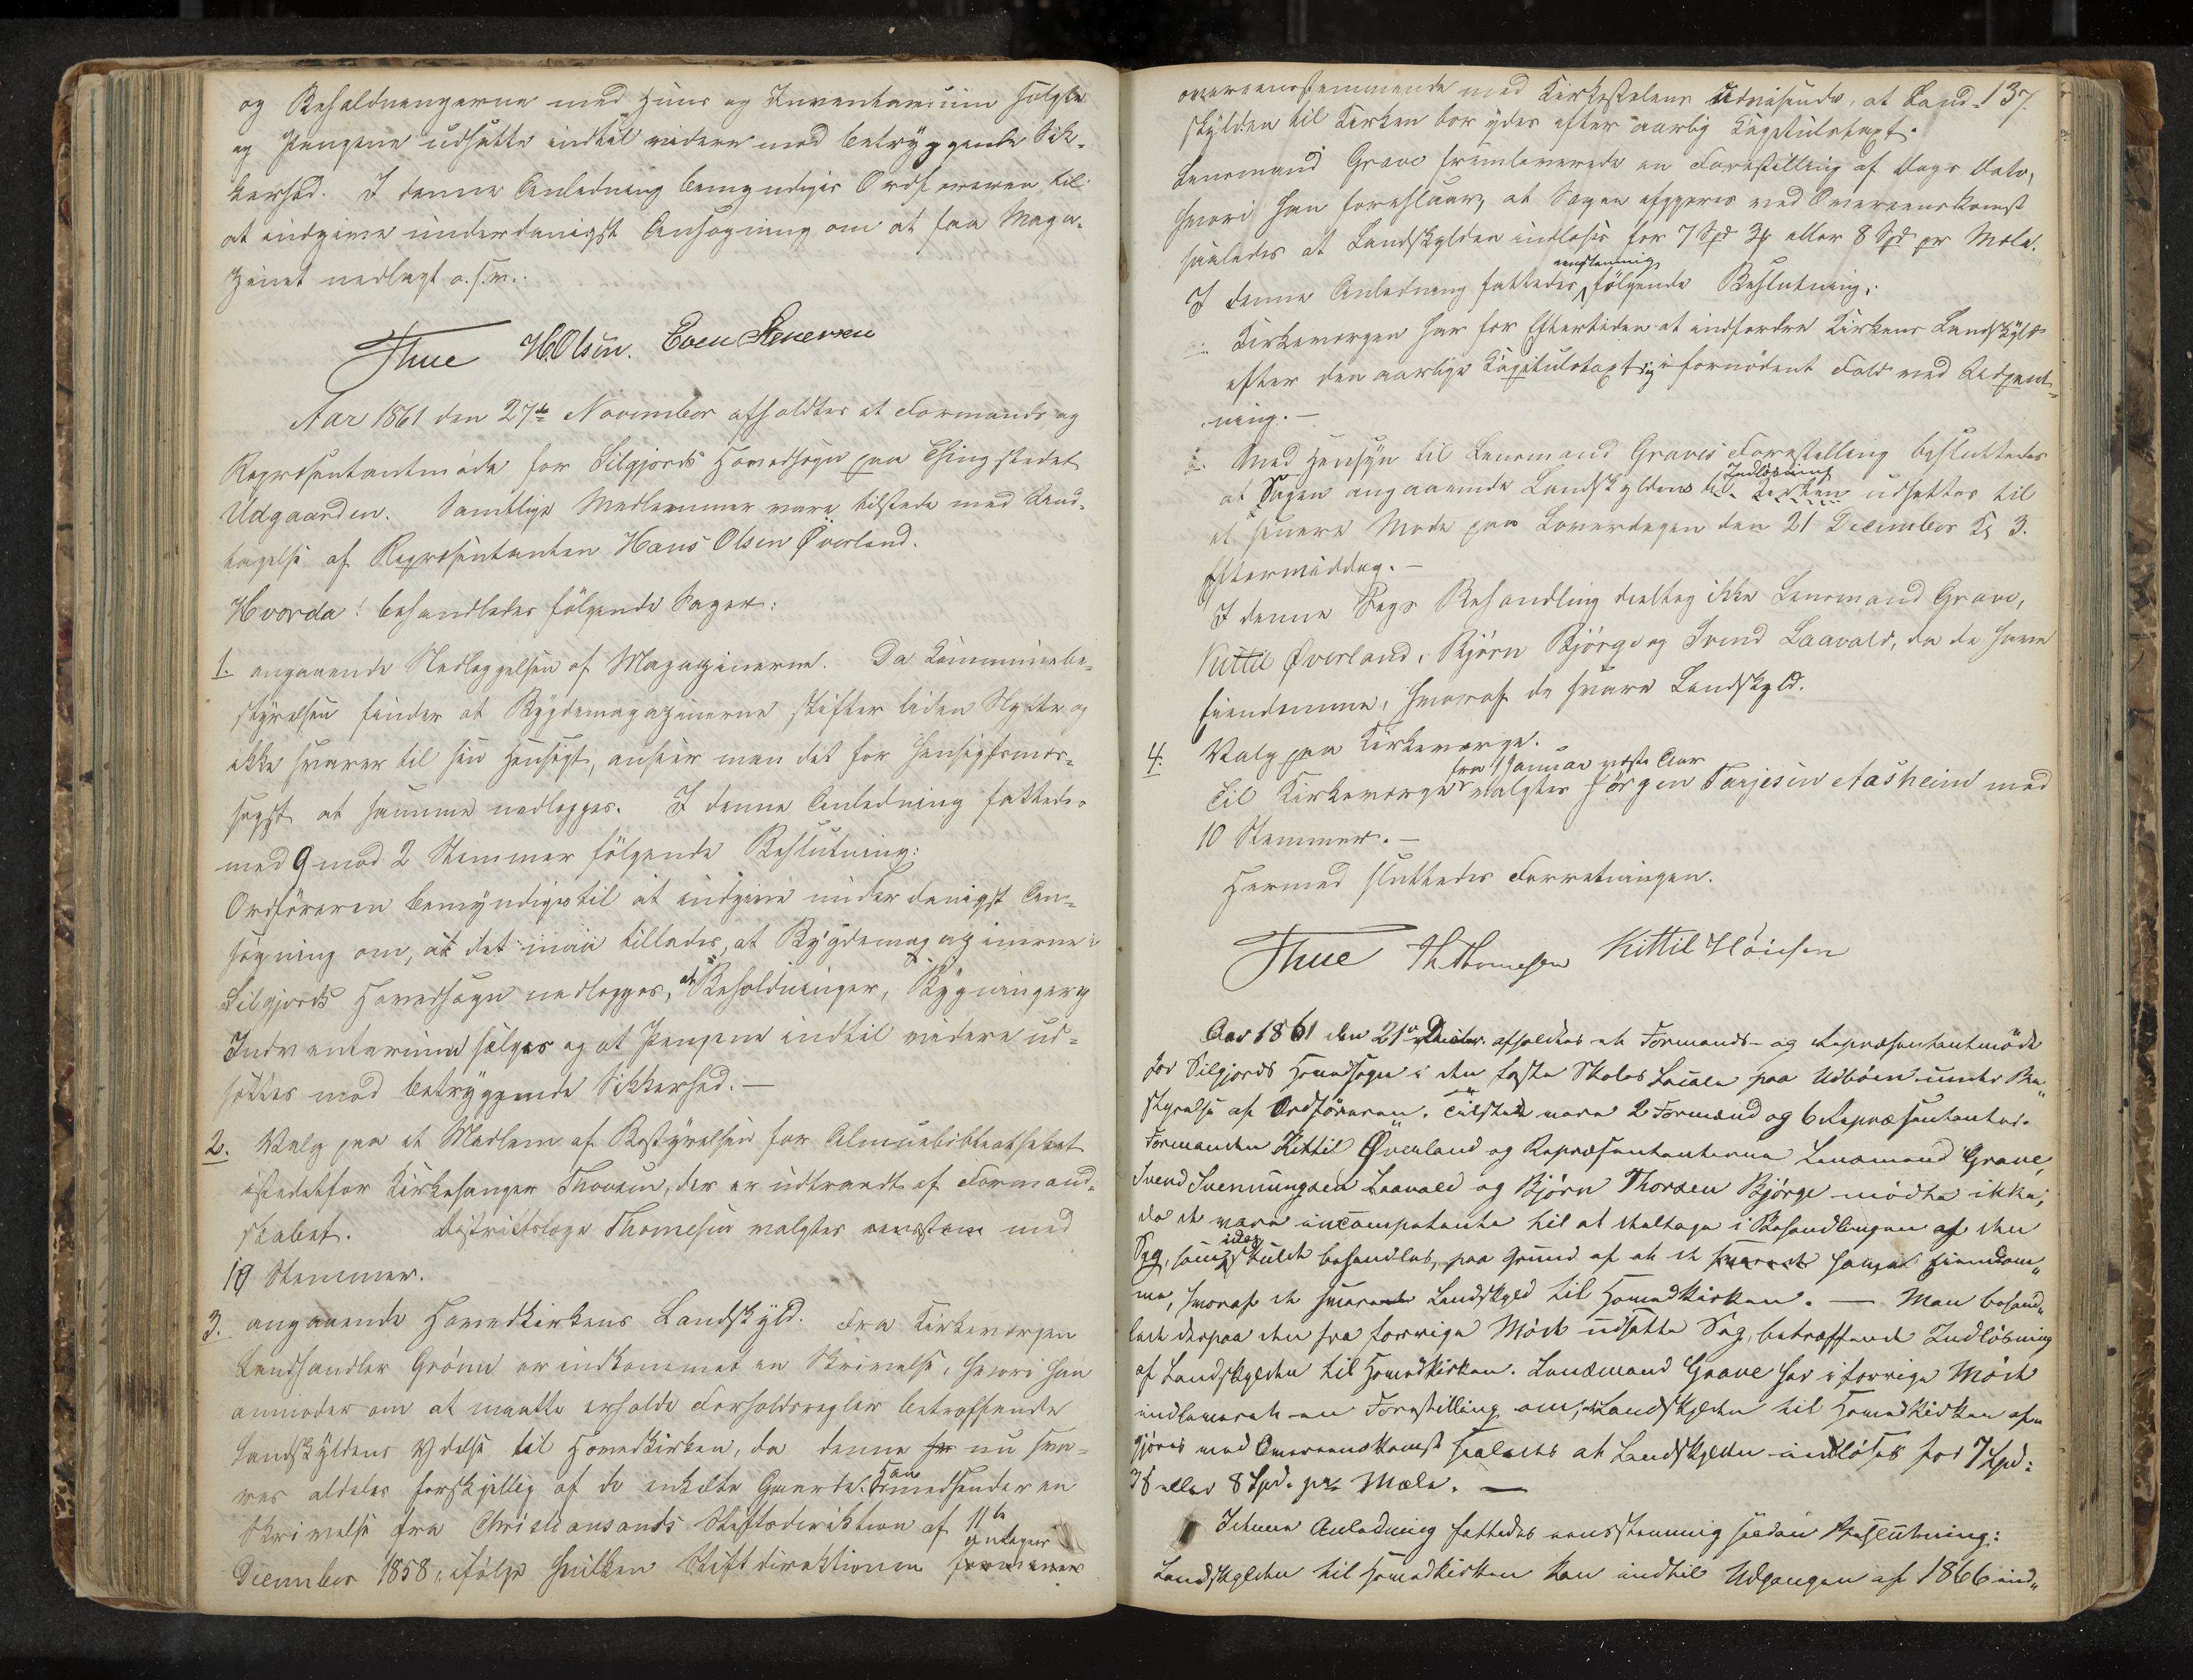 og Beholdningerne med Huus og Inventarium solgte
og Pengene udsatte indtil videre mod betryggende Sik-
kerhed. I denne Anledning bemyndiges Ordføreren til
at indgive underdanigst Ansøgning om at faa Maga-
zinet nedlagt o.s.v.:
Thue H. Olsen. Even Stenersen
Aar 1861 den 27de November afholdtes et Formands og
Repræsentantmøde for Silgjords Hovedsogn paa Thingstedet
Udgaarden. Samtlige Medlemmer vare tilstede med Und-
tagelse af Repræsentanten Hans Olsen Øverland.
Hvorda! behandledes følgende Sager:
1. angaaende Nedlæggelsen af Magazinerne. Da Kommunebe-
styrelsen finder at Bygdemagazinerne stifter liden Nytte og
ikke svarer til sin Hensigt, anseer man det for hensigtsmæs-
sigst at samme nedlægges. I denne Anledning fattedes
med 9 mod 2 Stemmer følgende Beslutning:
Ordføreren bemyndiges til at indgive underdanigst An-
søgning om, at det maa tillades, at Bygdemagazinerne i
Silgjords Hovedsogn nedlægges, at Beholdninger, Bygninger og
Inventarium sælges og at Pengene indtil videre ud-
sættes mod betryggende Sikkerhed. —
2. Valg paa et Medlem af Bestyrelsen for Almuebibliothekat
istedetfor Kirkesanger Thovsen, der er udtraadt af Formand-
skabet. Distriktslæge Thomesen valgtes eenstem med
10 Stemmer.
3. angaaende Hovedkirkens Landskyld. Fra Kirkeværgen
Landhandler Grønn er indkommet en Skrivelse, hvori han
anmoder om at maatte erholde Forholdsregler betræffende
Landskyldens Ydelse til Hovedkirken, da denne før nu sva-
res aldeles forskjellig af de enkelte Gaarde. Han medsender en
Skrivelse fra Christiansands Stiftsdirektion af 11te
December 1858, ifølge hvilken Stiftdirektionen formener antager
overeensstemmende med Kirkestolens Udvisende, at Land- 137.
skylden til Kirken bør ydes efter aarlig Kapitulstaxt.
Lensmand Grave fremleverede en Forestilling af Dags Dato,
hvori han foreslaar, at Sagen afgjøres ved Overeenskomst
saaledes at Landskylden indløses for 7 Spd 3 ℔ eller 8 Spd pr Mæle.
I denne Anledning fattedes eenstemmig følgende Beslutning:
1. Kirkeværgen har for Eftertiden at indfordre Kirkens Landskyld
efter den aarlige Kapitulstaxt og i fornødent Fald ved Udpant-
ning. —
2. Med Hensyn til Lensmand Graves Forestilling besluttedes
at Sagen angaaende Landskyldens Indløsning til Kirken udsættes til
et senere Møde paa Løverdagen den 21 December Kl 3.
Eftermiddag. —
I denne Sags Behandling deeltog ikke Lensmand Grave,
Kittil Øverland, Bjørn Bjørge og Svend Laavald, da de have
Eiendomme, hvoraf de svare Landskyld.
4. Valg paa Kirkeværge.
Til Kirkeværge fra 1 Januar næste Aar valgtes Jørgen Tarjesen Aasheim med
10 Stemmer. —
Hermed sluttedes Forretningen.
Thue Th Thomesen Kittil Höinsen
Aar 1861 den 21de Decbr. afholdtes et Formands- og Repræsentantmöde
for Silgjords Hovedsogn i den faste Skoles Locale paa Udböen under Be-
styrelse af Ordföreren. Tilstede vare 2 Formænd og 6 Repræsentanter.
Formanden Kittil Överland og Repræsentanterne Lensmand Grave,
Svend Svennungsen Laavald og Björn Thorsen Björge mödte ikke,
da de vare incompetente til at deeltage i Behandlingen af den
Sag, som idag skulde behandles, paa Grund af at de svarede havde Eiendom-
me, hvoraf de svarede Landskyld til Hovedkirken. — Man behand-
lede derpaa den fra forrige Möde udsatte Sag, betræffende Indlösning
af Landskylden til Hovedkirken. Lensmand Grave har i forrige Möde
indleveret en Forestilling om, at Landskylden til Hovedkirken af-
gjöres med Overeenskomst saaledes at Landskylden indlöses for 7 Spd:
3 ß eller 8 Spd. pr: Mæle. —
I denne Anledning fattedes eensstemmig saadan Beslutning:
Landskylden til Hovedkirken kan indtil Udgangen af 1866 ind-